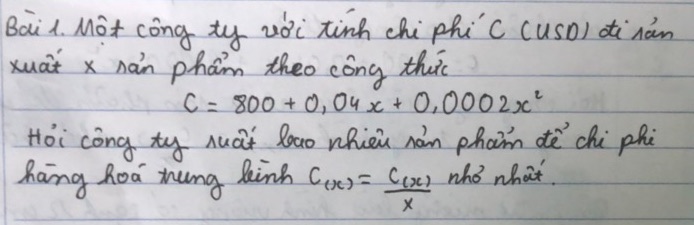 Bài 1. Một công ty với tính chi phí C (USD) đi sản
xuất x sản phẩm theo công thức
C = 800 + 0,04x + 0,0002x²
Hỏi công ty xuất bao nhiêu sản phẩm để chi phi
hàng hoá trung bình C(x) = C(x)/x nhỏ nhất.